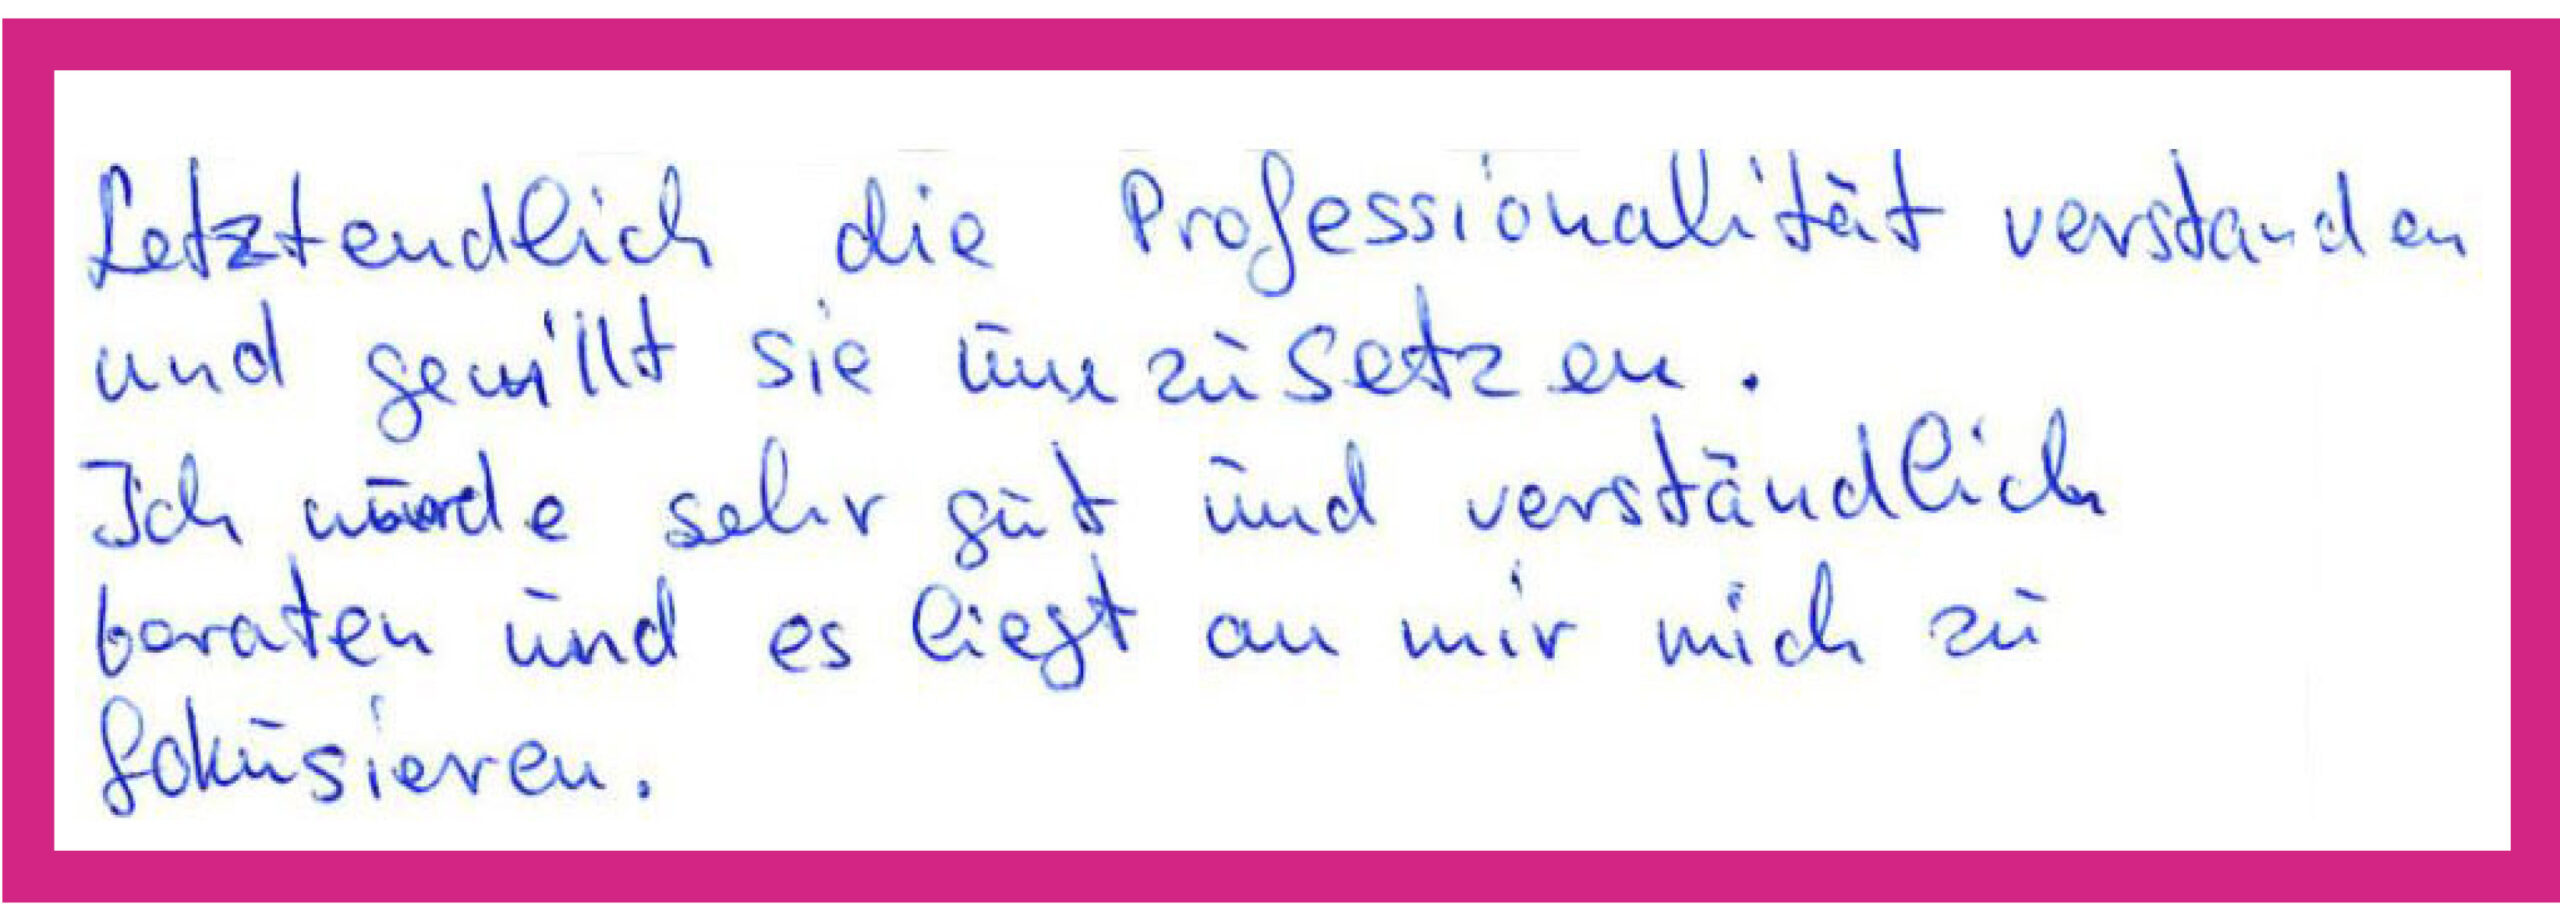 Letztendlich die Professionalität verstanden
und gewillt sie umzusetzen.
Ich wurde sehr gut und verständlich
beraten und es liegt an mir mich zu
fokusieren.